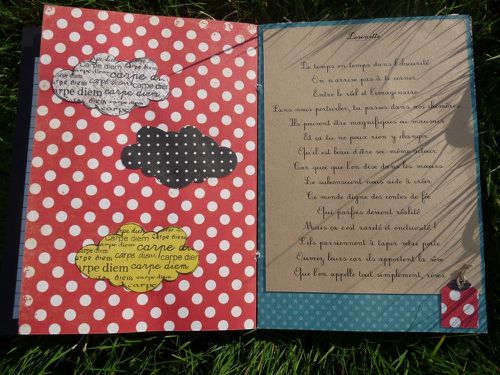 carpe diem
carpe diem
carpe diem
carpe diem
carpe diem
carpe diem
De temps en temps dans l'obscurité
On n'arrive pas à te cerner
Entre le réel et l'imaginaire
Sans nous perturber, tu passes dans
Ils peuvent être magnifiques ou mauvais
Et ça tu ne peux rien y changer
Qu'il est beau d'être
Car quoi que l'on dise dans les mœurs
Le subconscient nous aide à créer
Ce monde digne des contes de fée
Qui parfois devient réalité
Mais ça c'est rareté et
S'ils parviennent à taper votre porte
Ouvrez leurs car ils apportent la sève
Que l'on appelle tout simplement, rêves